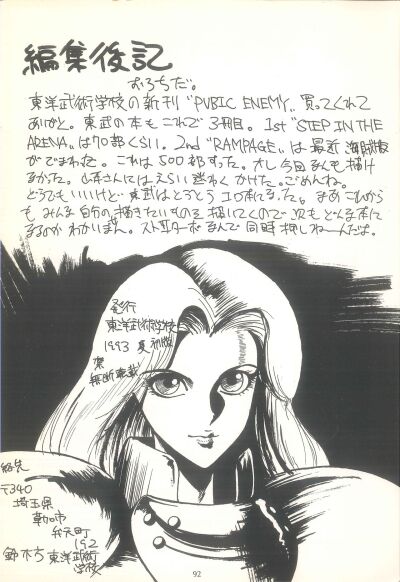 編集後記
むろちだ。
東洋武術学校の新刊“PUBIC ENEMY„買ってくれて
ありがと。東武の本もこれで3冊目。1st“STEP IN THE
ARENA„は70部くらい。2nd“RAMPAGE„は最近海賊版
がでまわた。これは500部すった。オレ今回るんも描け
るかった。山本さんにはえらい迷わくかけた。ごめんね。
どうでもいいけど東武はとうとうエロ本になった。まあこれから
もみんな自分の描きたいものを描いてくので次もどんな本に
なるかわかりません。ストIIターボなんで同時押しねーんだよ。
発行
東洋武術学校
1993 夏 初版
禁
無断転載
連絡先
〒340
埼玉県
草加市
弁天町
192
鈴木方 東洋武術
学校
92